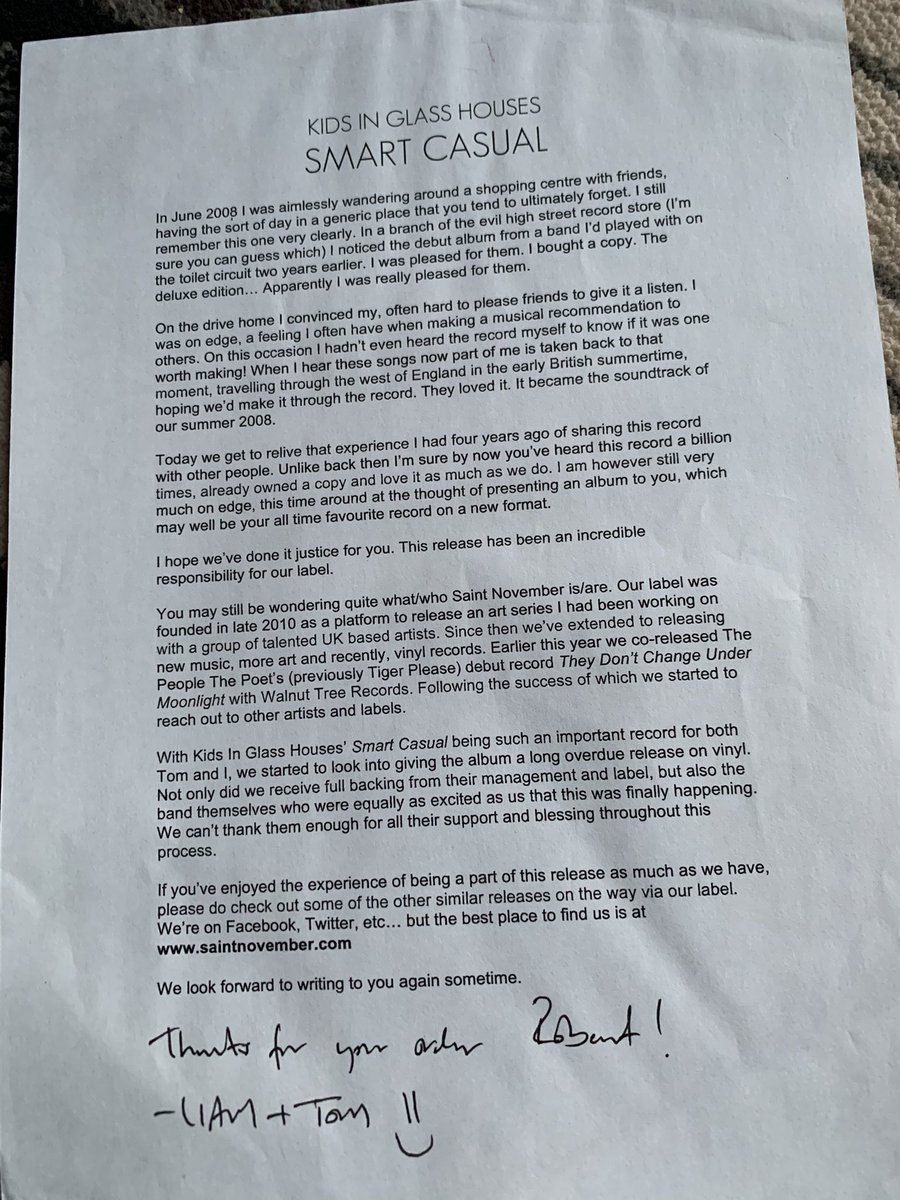 KIDS IN GLASS HOUSES
SMART CASUAL
In June 2008 I was aimlessly wandering around a shopping centre with friends,
having the sort of day in a generic place that you tend to ultimately forget. I still
remember this one very clearly. In a branch of the evil high street record store (I'm
sure you can guess which) I noticed the debut album from a band I'd played with on
the toilet circuit two years earlier. I was pleased for them. I bought a copy. The
deluxe edition... Apparently I was really pleased for them.
On the drive home I convinced my, often hard to please friends to give it a listen. I
was on edge, a feeling I often have when making a musical recommendation to
others. On this occasion I hadn't even heard the record myself to know if it was one
worth making! When I hear these songs now part of me is taken back to that
moment, travelling through the west of England in the early British summertime,
hoping we'd make it through the record. They loved it. It became the soundtrack of
our summer 2008.
Today we get to relive that experience I had four years ago of sharing this record
with other people. Unlike back then I'm sure by now you've heard this record a billion
times, already owned a copy and love it as much as we do. I am however still very
much on edge, this time around at the thought of presenting an album to you, which
may well be your all time favourite record on a new format.
I hope we've done it justice for you. This release has been an incredible
responsibility for our label.
You may still be wondering quite what/who Saint November is/are. Our label was
founded in late 2010 as a platform to release an art series I had been working on
with a group of talented UK based artists. Since then we've extended to releasing
new music, more art and recently, vinyl records. Earlier this year we co-released The
People The Poet's (previously Tiger Please) debut record They Don't Change Under
Moonlight with Walnut Tree Records. Following the success of which we started to
reach out to other artists and labels.
With Kids In Glass Houses' Smart Casual being such an important record for both
Tom and I, we started to look into giving the album a long overdue release on vinyl.
Not only did we receive full backing from their management and label, but also the
band themselves who were equally as excited as us that this was finally happening.
We can't thank them enough for all their support and blessing throughout this
process.
If you've enjoyed the experience of being a part of this release as much as we have,
please do check out some of the other similar releases on the way via our label.
We're on Facebook, Twitter, etc... but the best place to find us is at
www.saintnovember.com
We look forward to writing to you again sometime.
Thanks for your order Robert!
-LIAM + Tom